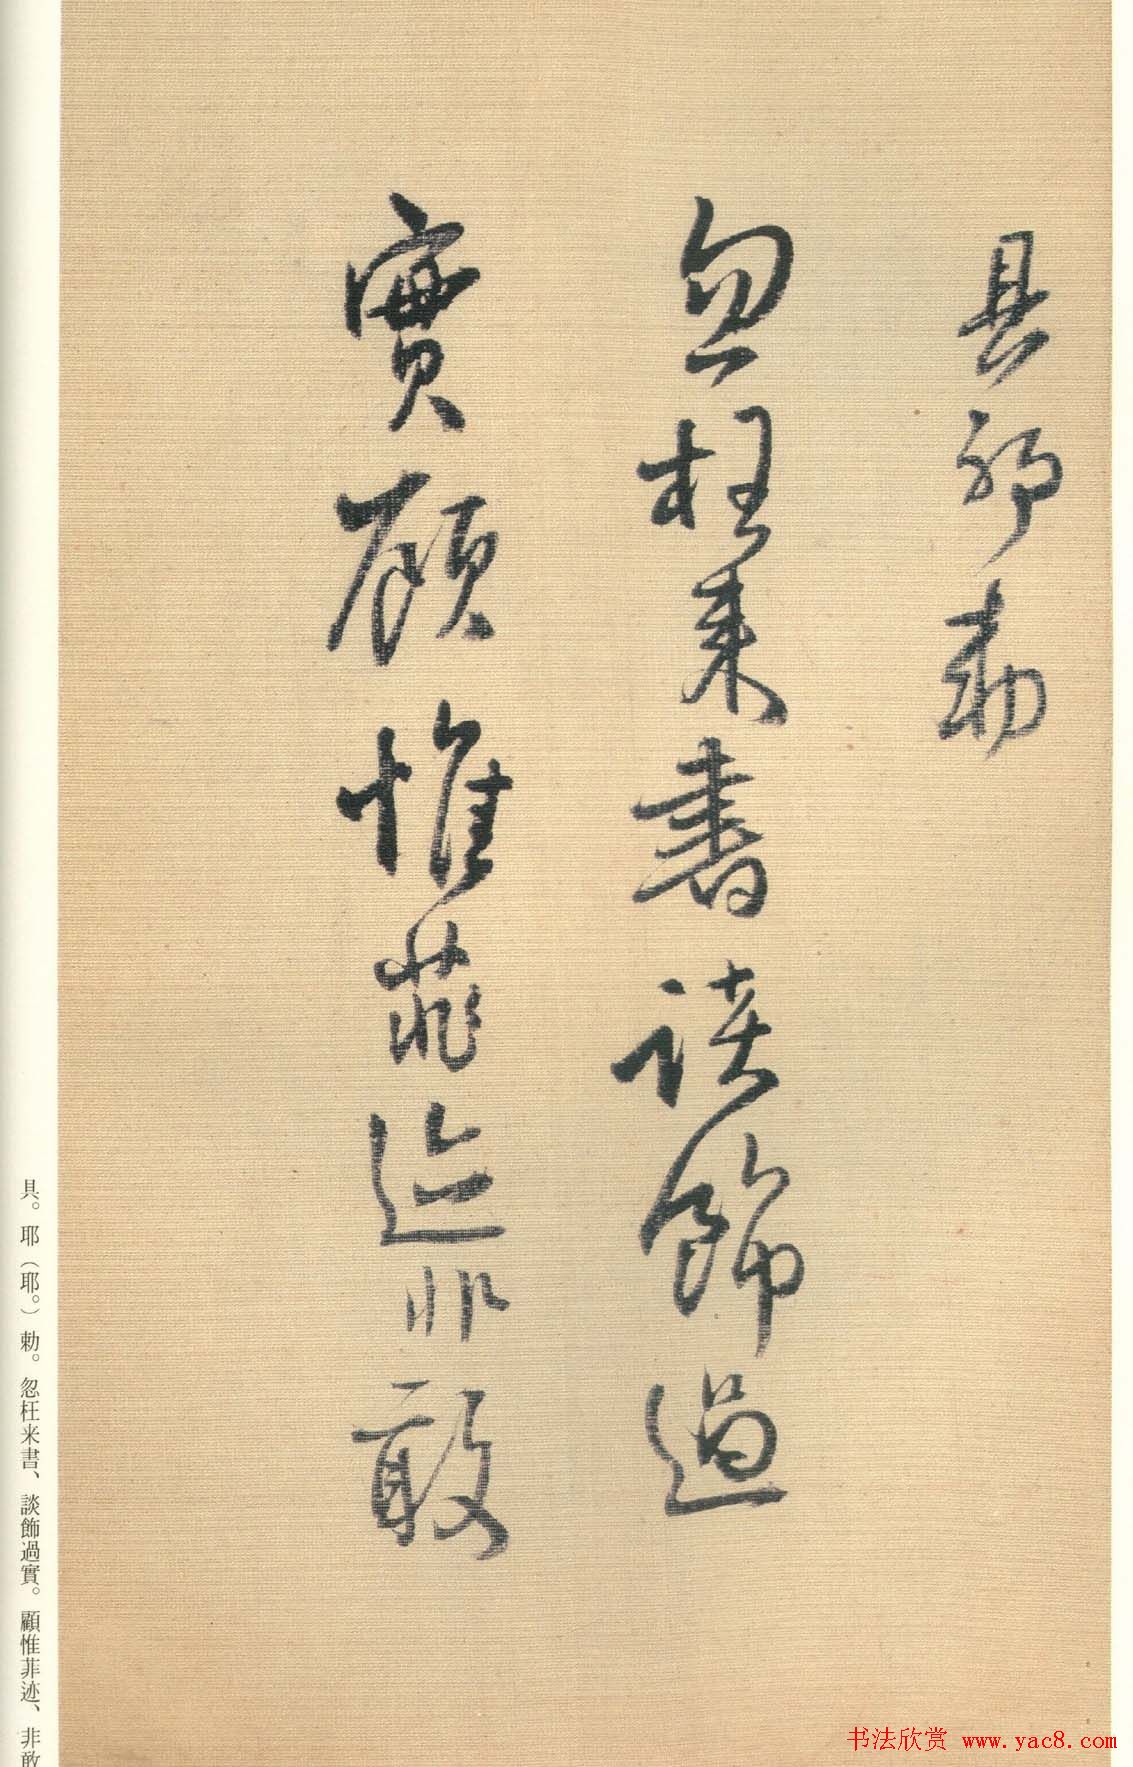 具耶勅
忽枉来書談飾過
實顧惟菲迹非敢
具。耶（耶。）勅。忽枉来書、談飾過實。顧惟菲迹、非敢
书法欣赏 www.yac8.com